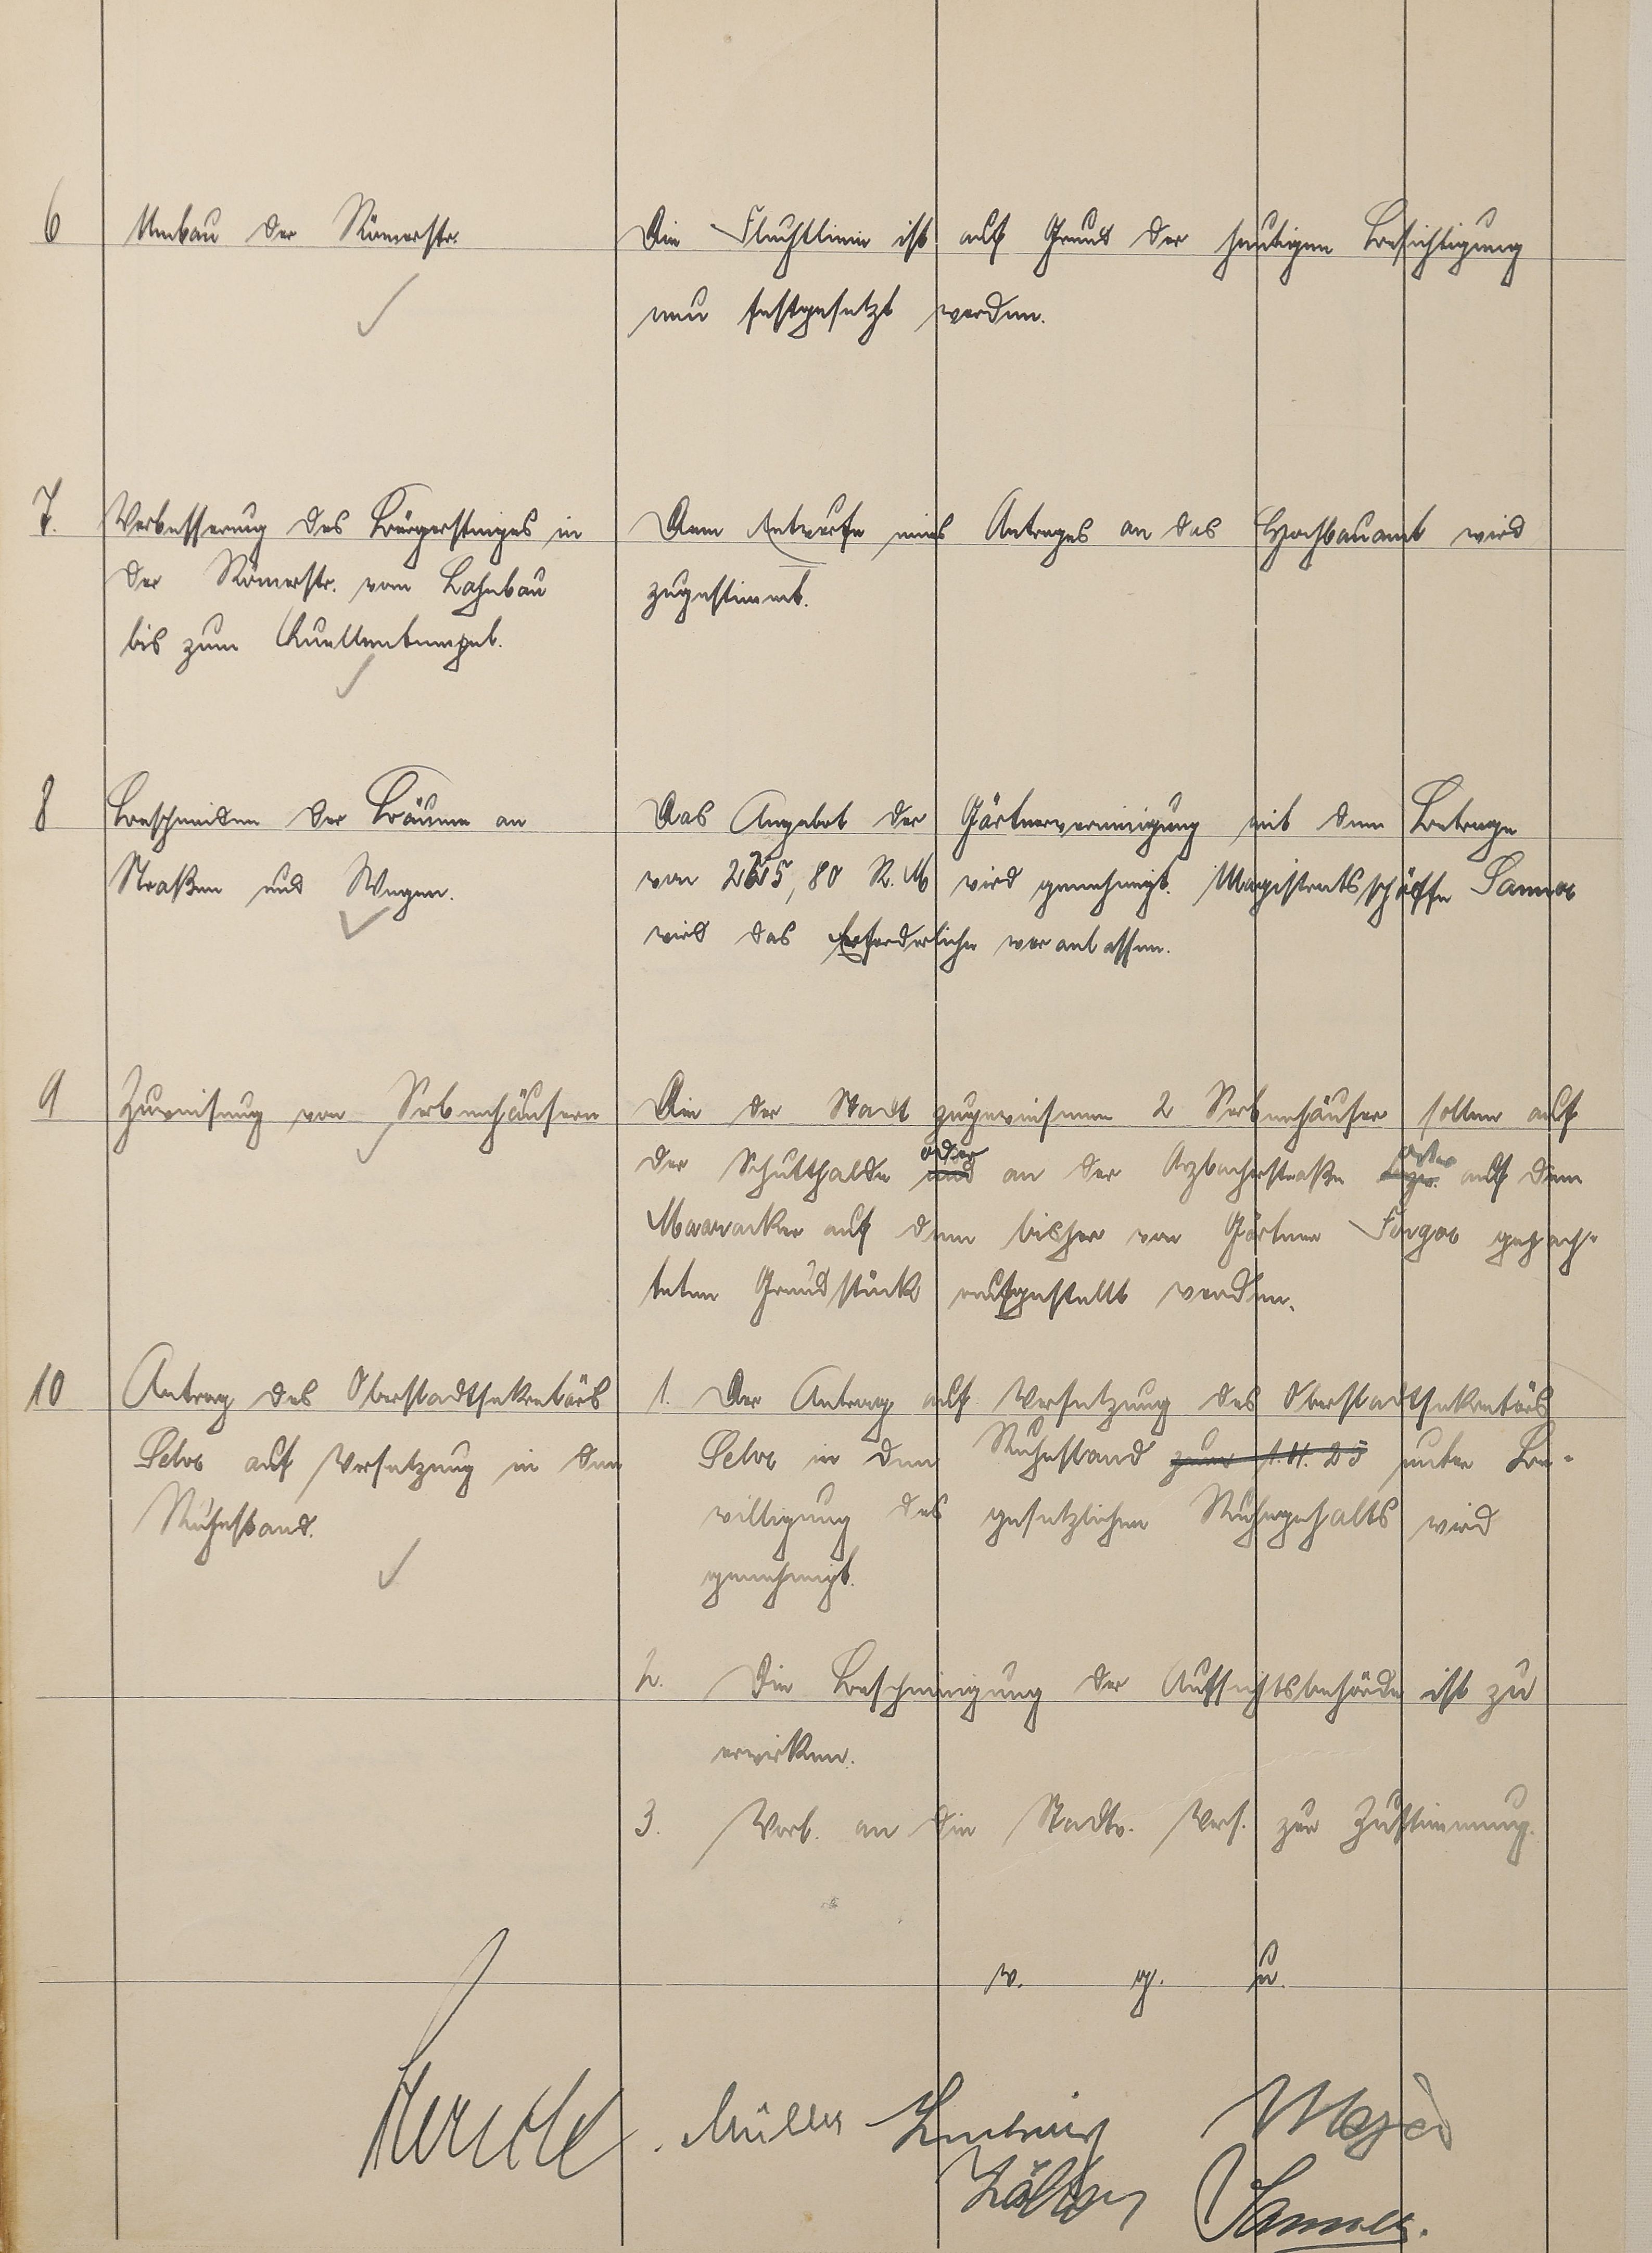 6 Umbau der Römerstr.
Die Fluchtlinie ist auf Grund der heutigen Besichtigung
neu festgesetzt werden.
7. Verbesserung des Bürgersteiges in
der Römerstr. vom Bahnbau
bis zum Quellentempel.
Dem Entwurfe eines Antrages an das Hochbauamt wird
zugestimmt.
8 Beschneiden der Bäume an
Straßen und Wegen.
Das Angebot der Gärtnervereinigung mit dem Betrage
von 225,80 R.M wird genehmigt. Magistratsschöffe Sanner
wird das Erforderliche veranlassen.
9 Zuweisung von Serbenhäusern
Die der Stadt zugewiesenen 2 Serbenhäuser sollen auf
der Schutthalde und oder an der Arzbacherstraße oder auf dem
Maaracker auf dem bisher von Gärtner gepach-
teten Grundstück aufgestellt werden.
10 Antrag des Oberstadtsekretärs
Selve auf Versetzung in den
Ruhestand.
1. Der Antrag auf Versetzung des Oberstadtsekretärs
Selve in den Ruhestand zum 1.4.25 unter Be-
willigung des gesetzlichen Ruhegehalts wird
genehmigt.
2. Die Bescheinigung der Aufsichtsbehörde ist zu
erwirken.
3. Vorl. an die Stadtv. Vers. zur Zustimmung.
v. g. u.
Müller
Meyer
Sanner.